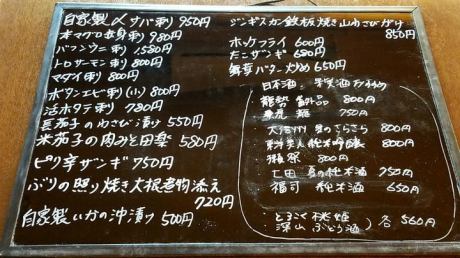 自家製〆サバ刺り 950円
本マグロ中トロ刺り 980円
バフンウニ刺り 1,580円
トロサーモン刺り 800円
マダイ刺り 800円
ボタンエビ刺り(小) 800円
活ホタテ刺り 780円
長茄子のわさび漬け 550円
米茄子の肉みそ田楽 580円
ピリ辛ザンギ 750円
ぶりの照り焼き大根煮物添え
720円
自家製いかの沖漬り 500円
ジンギスカン鉄板焼き山わさびがけ
850円
ホッケフライ 600円
たこザンギ 680円
舞茸バター炒め 650円
日本酒
800円
750円
800円
純米吟醸 800円
800円
純米酒 750円
福司 純米酒 650円
深山ぶどう酒
各560円